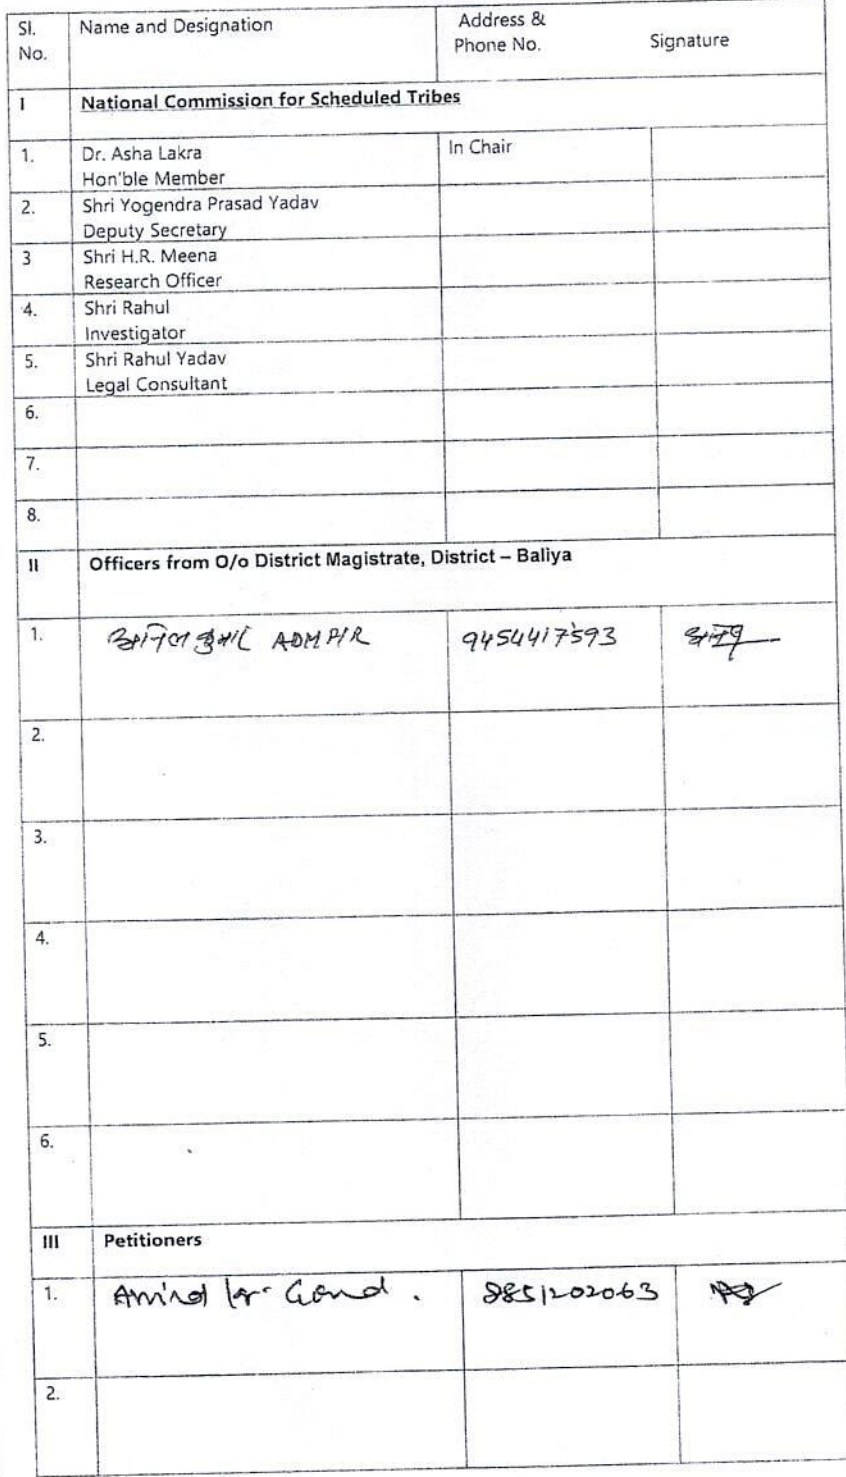 Sl. No. Name and Designation Address & Phone No. Signature
I National Commission for Scheduled Tribes
1. Dr. Asha Lakra In Chair
Hon'ble Member
2. Shri Yogendra Prasad Yadav
Deputy Secretary
3 Shri H.R. Meena
Research Officer
4. Shri Rahul
Investigator
5. Shri Rahul Yadav
Legal Consultant
6.
7.
8.
II Officers from O/o District Magistrate, District – Baliya
1. अनिल कुमार ADM F/R 9454417593
2.
3.
4.
5.
6.
III Petitioners
1. Gond. 9851202063
2.